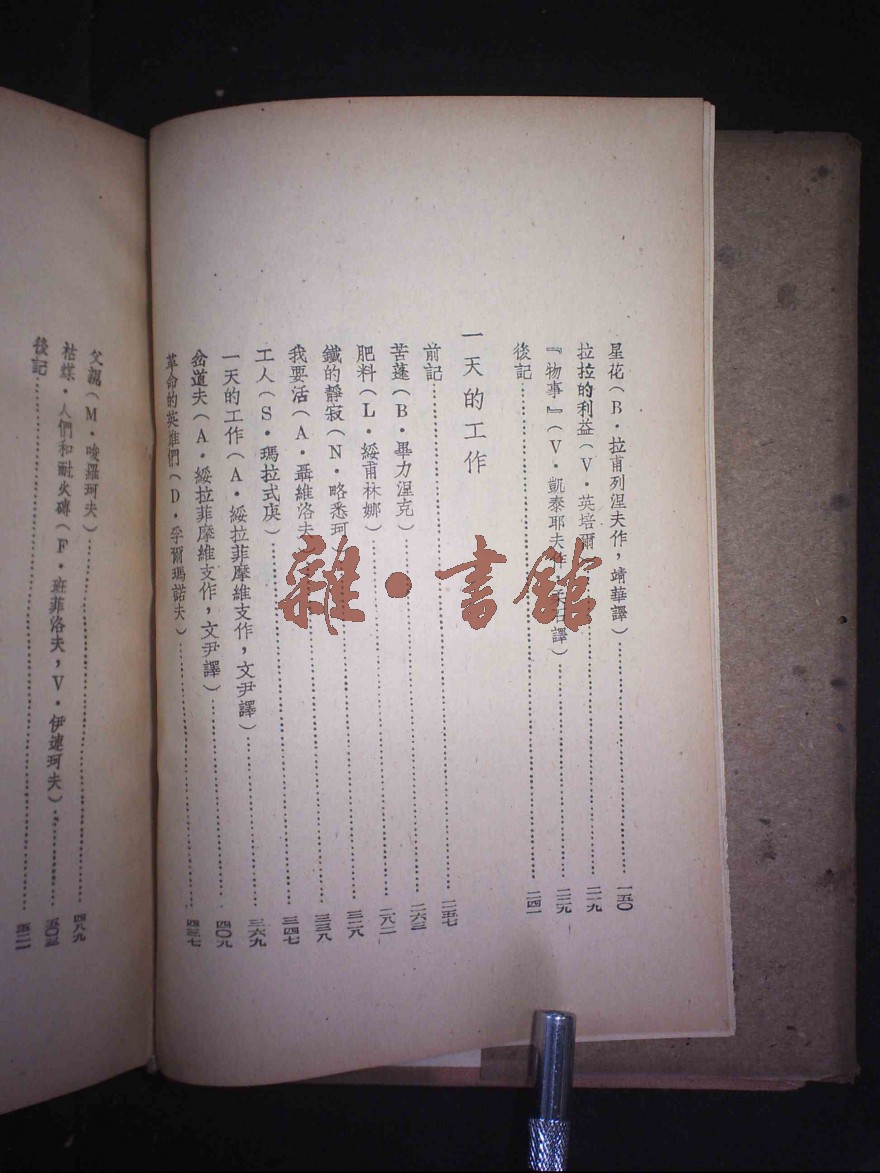 星花（B・拉甫列涅夫作，靖華譯）……一五〇
拉拉的利益（V・英培爾……二一九
『物事』（V・凱泰耶夫作，柔石譯）……二二九
後記……二四一
一天的工作
前記……二五七
苦蓬（B・畢力涅克）……二六三
肥料（L・綏甫林娜）……二八二
鐵的靜寂（N・略悉珂……三二八
我要活（A・聶維洛夫……三三八
工人（S・瑪拉式庚）……三四七
一天的工作（A・綏拉菲摩維支作，文尹譯）……三六九
岔道夫（A・綏拉菲摩維支作，文尹譯）……四〇九
革命的英雄們（D・孚爾瑪諾夫）……四三七
父親（M・唆羅珂夫）……四八九
枯煤・人們和耐火磚（F・班菲洛夫，V・伊連珂夫）……五〇三
後記……五二一
雜・書館